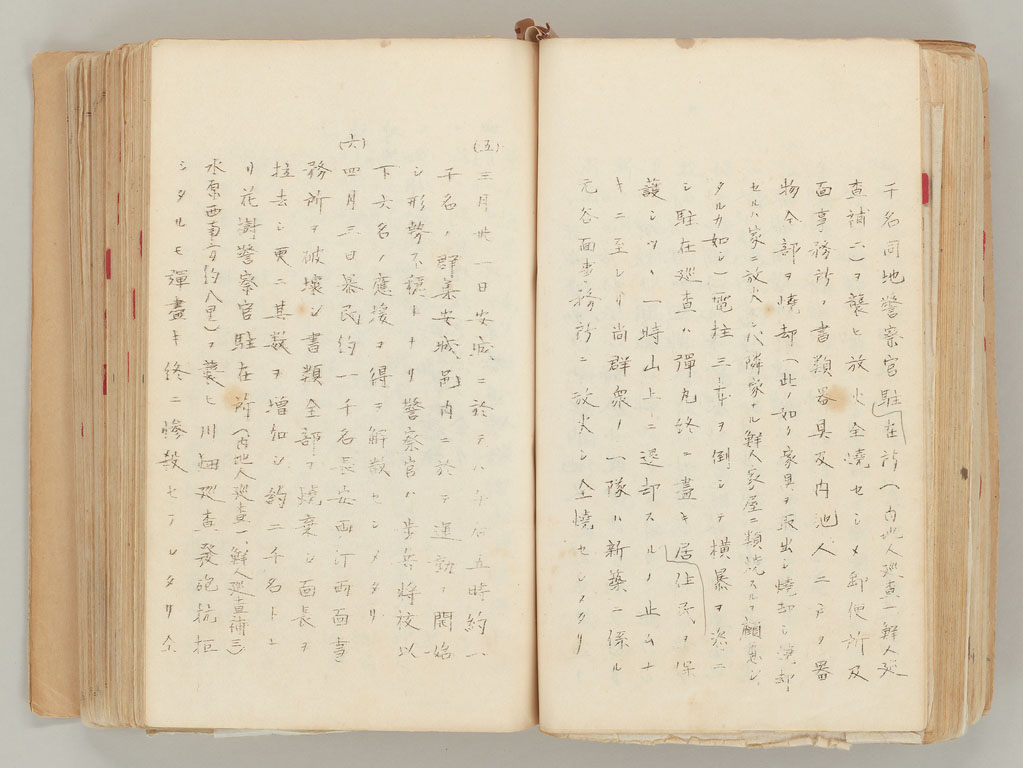 千名同地警察官駐在所(内地人巡査一鮮人巡
査補二)ヲ襲ヒ放火全焼セシメ郵便所及
面事務所ノ書類器具及内地人二戸ヲ番
物全部ヲ焼却(此ノ如ク家具ヲ取出シ焼却シ焼却
セルハ家ニ放火セハ隣家ナル鮮人家屋ニ類焼スルヲ顧慮シ
タルカ如シ)電柱三本ヲ倒シテ横暴ヲ恣ニ
シ駐在巡査ハ弾丸終ニ尽キ居住民ヲ保
護シツヽ一時山上ニ退却スルノ止ムナ
キニ至レリ尚群衆ノ一隊ハ新築ニ係ル
元谷面事務所ニ放火シ全焼セシメタリ
(五)
三月卅一日安城ニ於テハ午后五時約一
千名ノ群集安城邑内ニ於テ運動ヲ開始
シ形勢不穏トナリ警察官ハ歩兵将校以
下六名ノ應援ヲ得テ解散セシメタリ
(六)
四月三日暴民約一千名長安面汀面面事
務所ヲ破壊シ書類全部ヲ焼棄シ面長ヲ
拉去シ更ニ其数ヲ増加シ約二千名トナ
リ花樹警察官駐在所(内地人巡査一、鮮人巡査補三)
水原西南方約八里)ヲ襲ヒ川畑巡査發砲抗拒
シタルモ弾盡キ終ニ惨殺セラレタリ仝